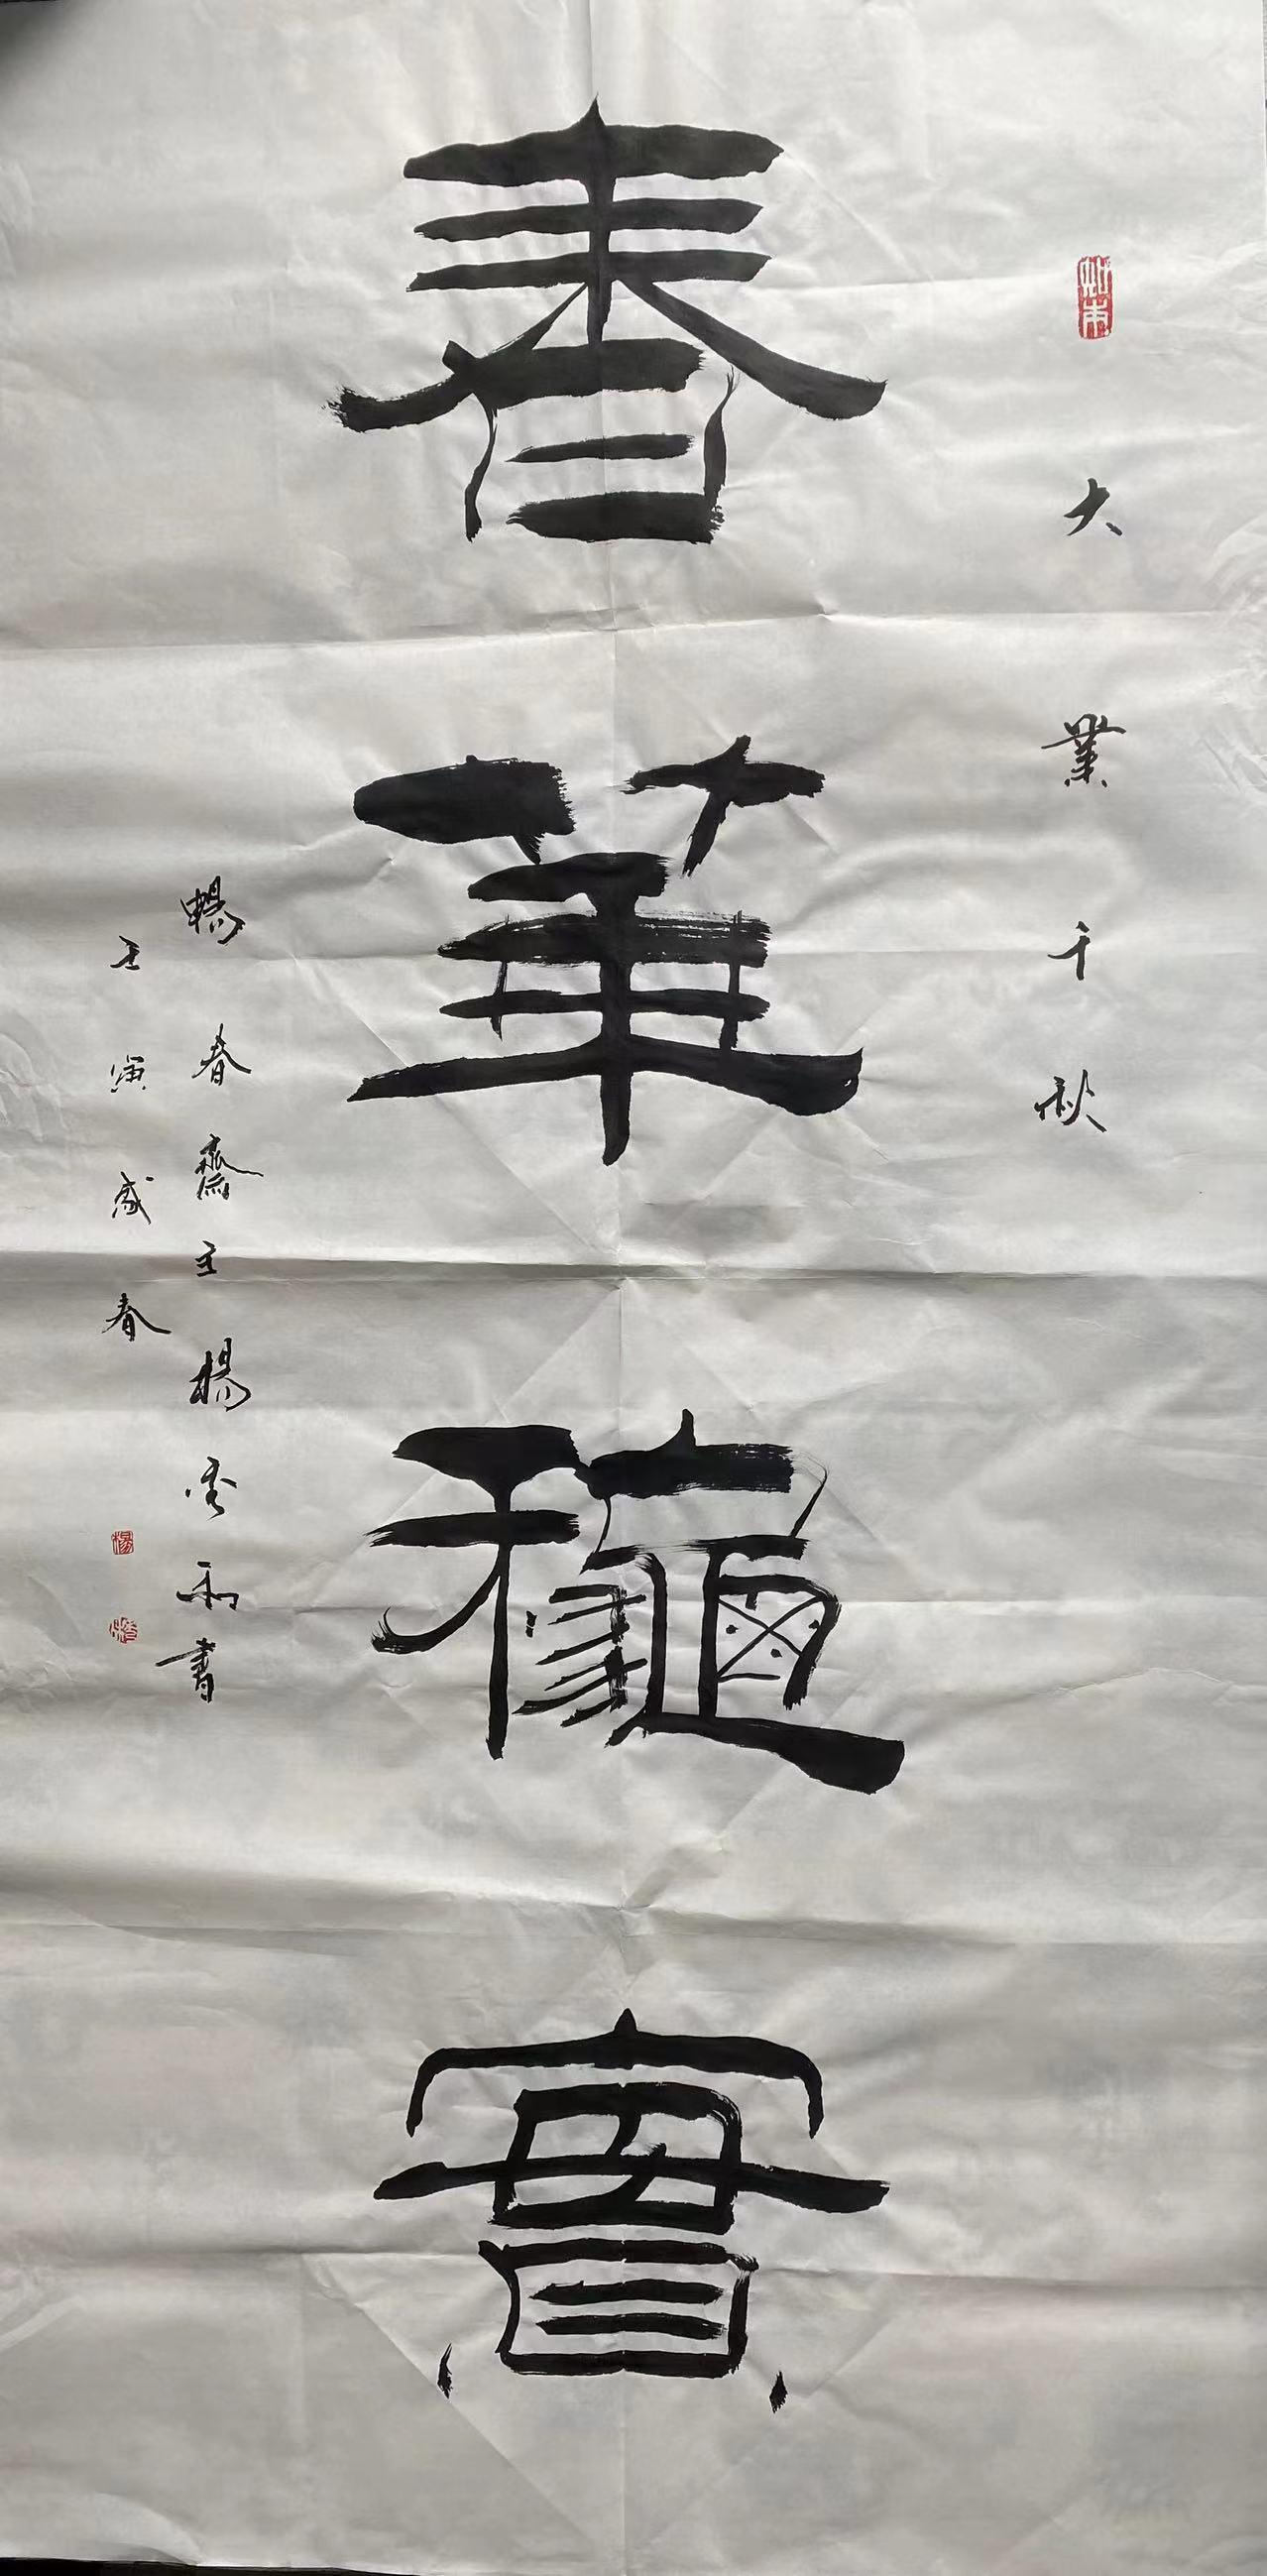 大業千秋
春華穐實
暢春齋主楊金和書
壬寅盛春